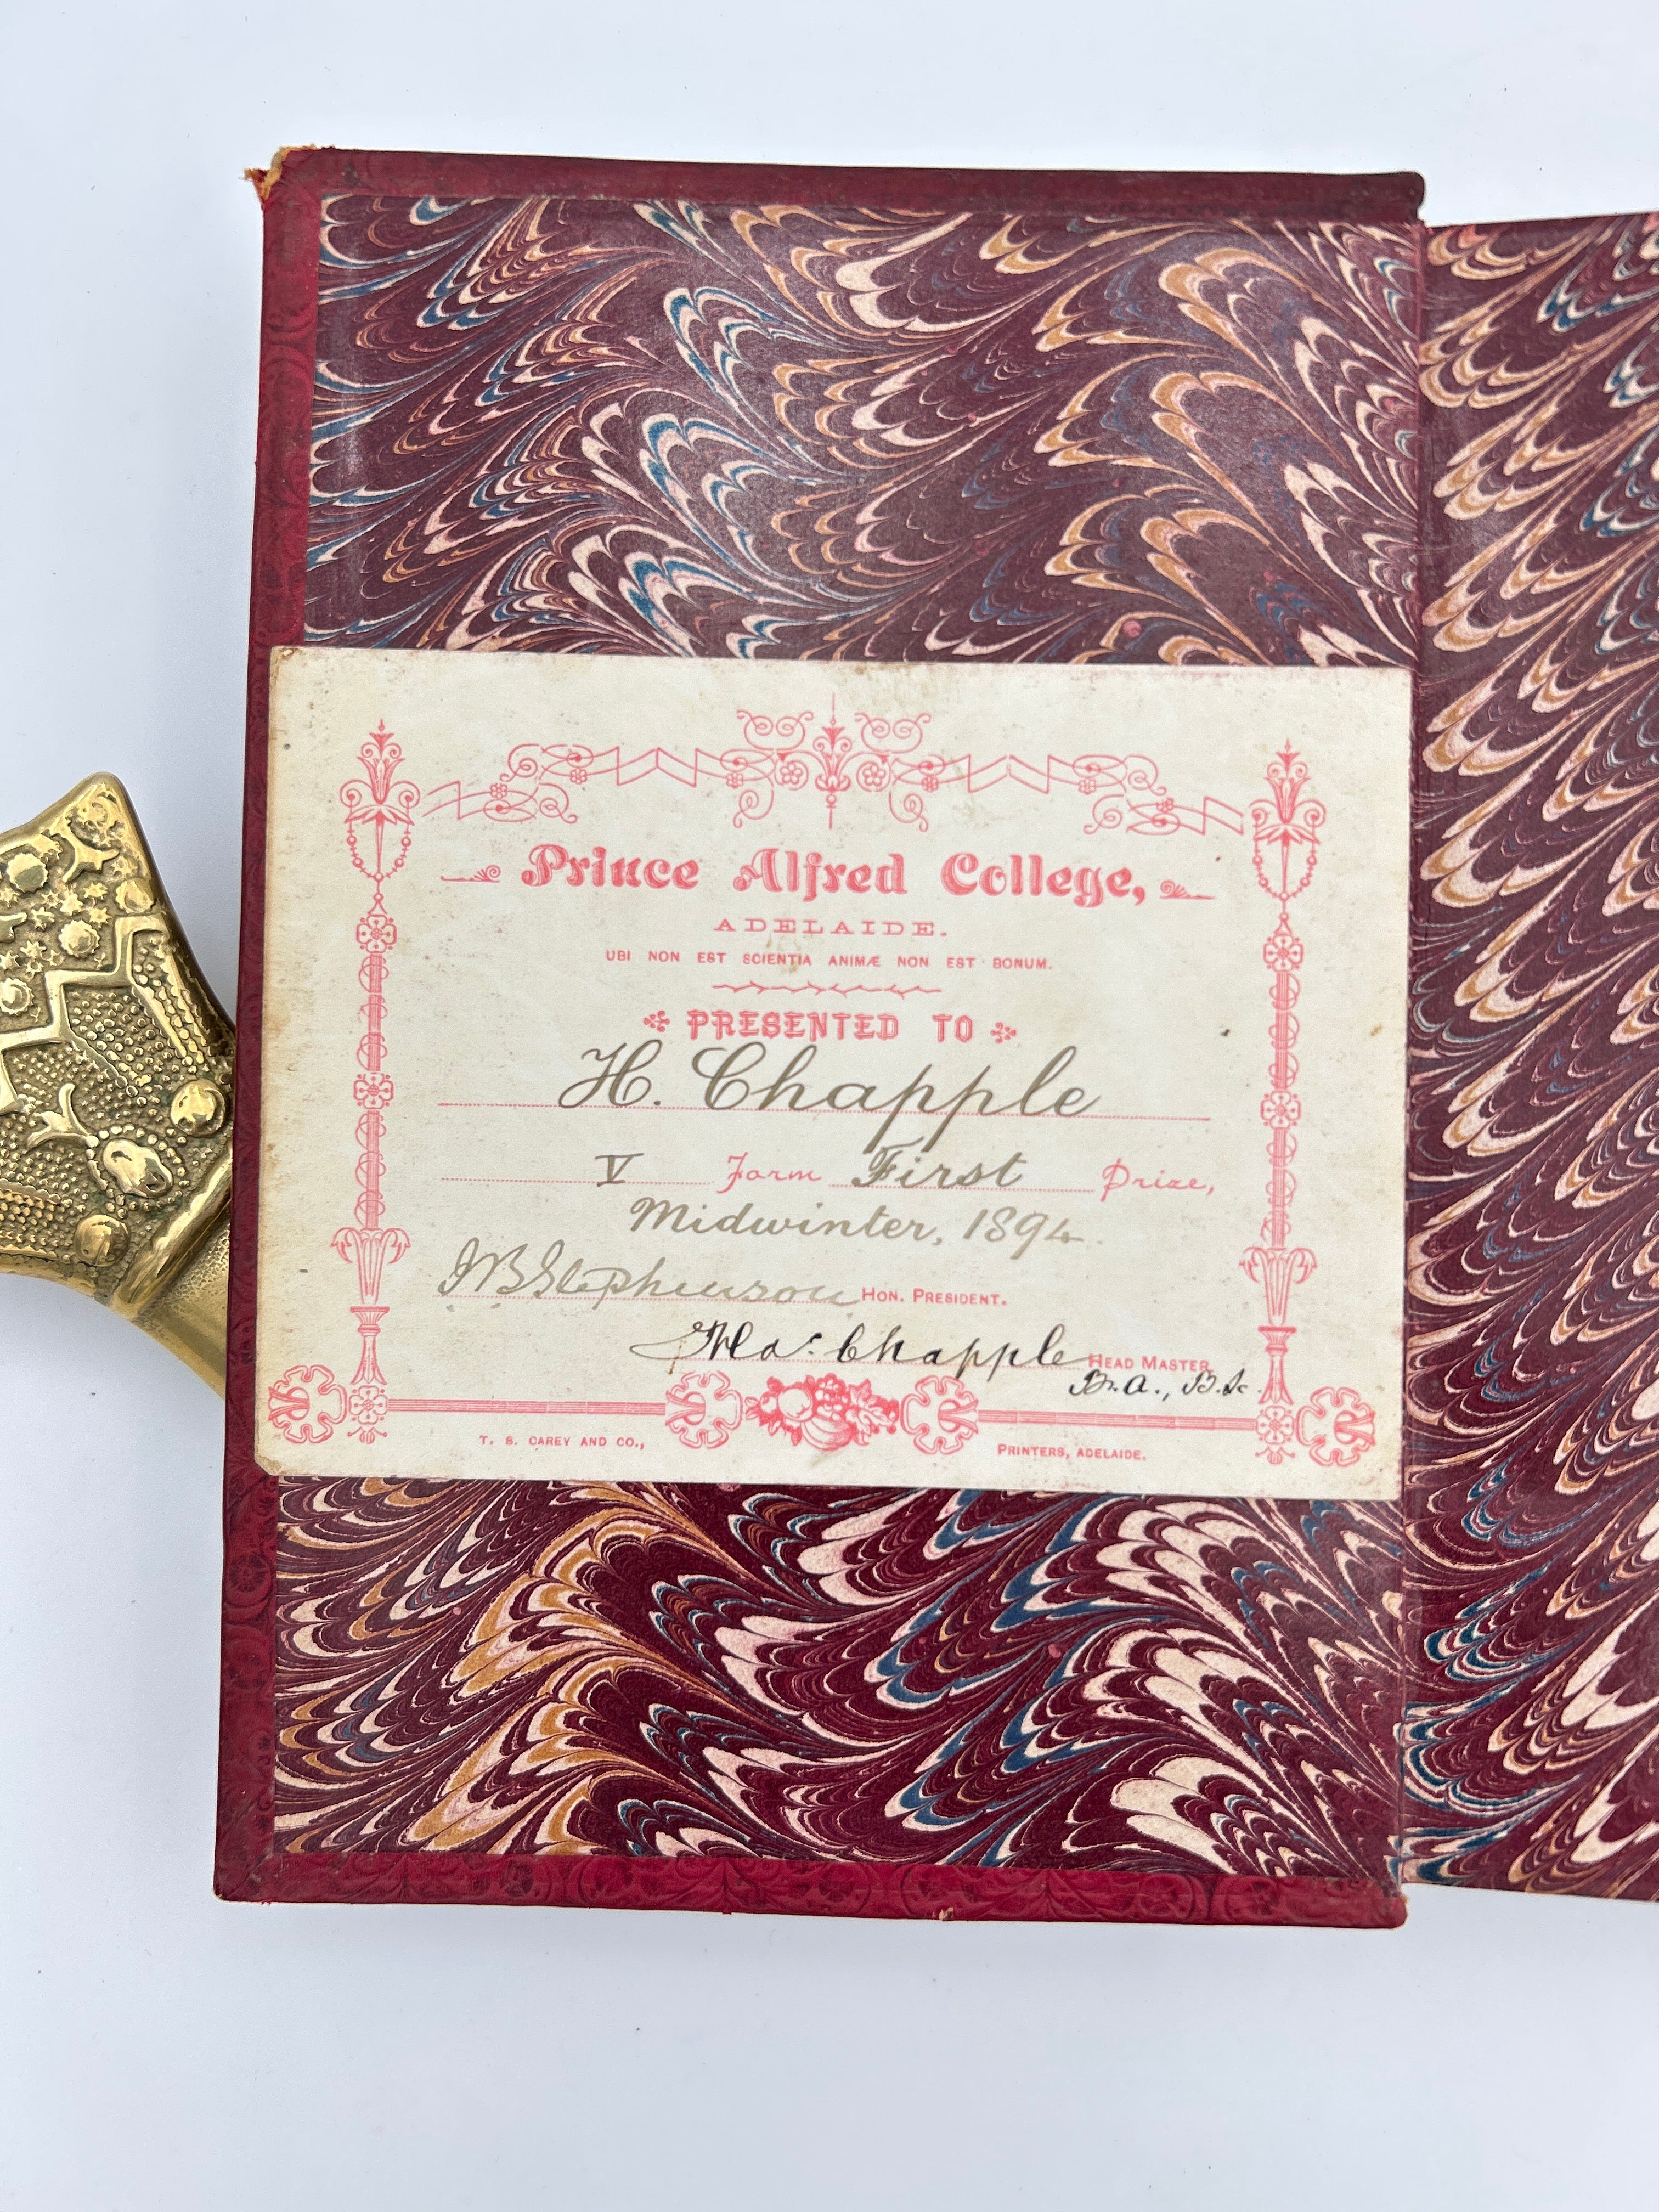 Prince Alfred College,
ADELAIDE.
UBI NON EST SCIENTIA ANIMÆ NON EST BONUM.
PRESENTED TO
H. Chapple
V Form First Prize,
Midwinter, 1894.
JB Stephenson HON. PRESIDENT.
Thos. Chapple HEAD MASTER
B.A., B.Sc.
T. S. CAREY AND CO., PRINTERS, ADELAIDE.